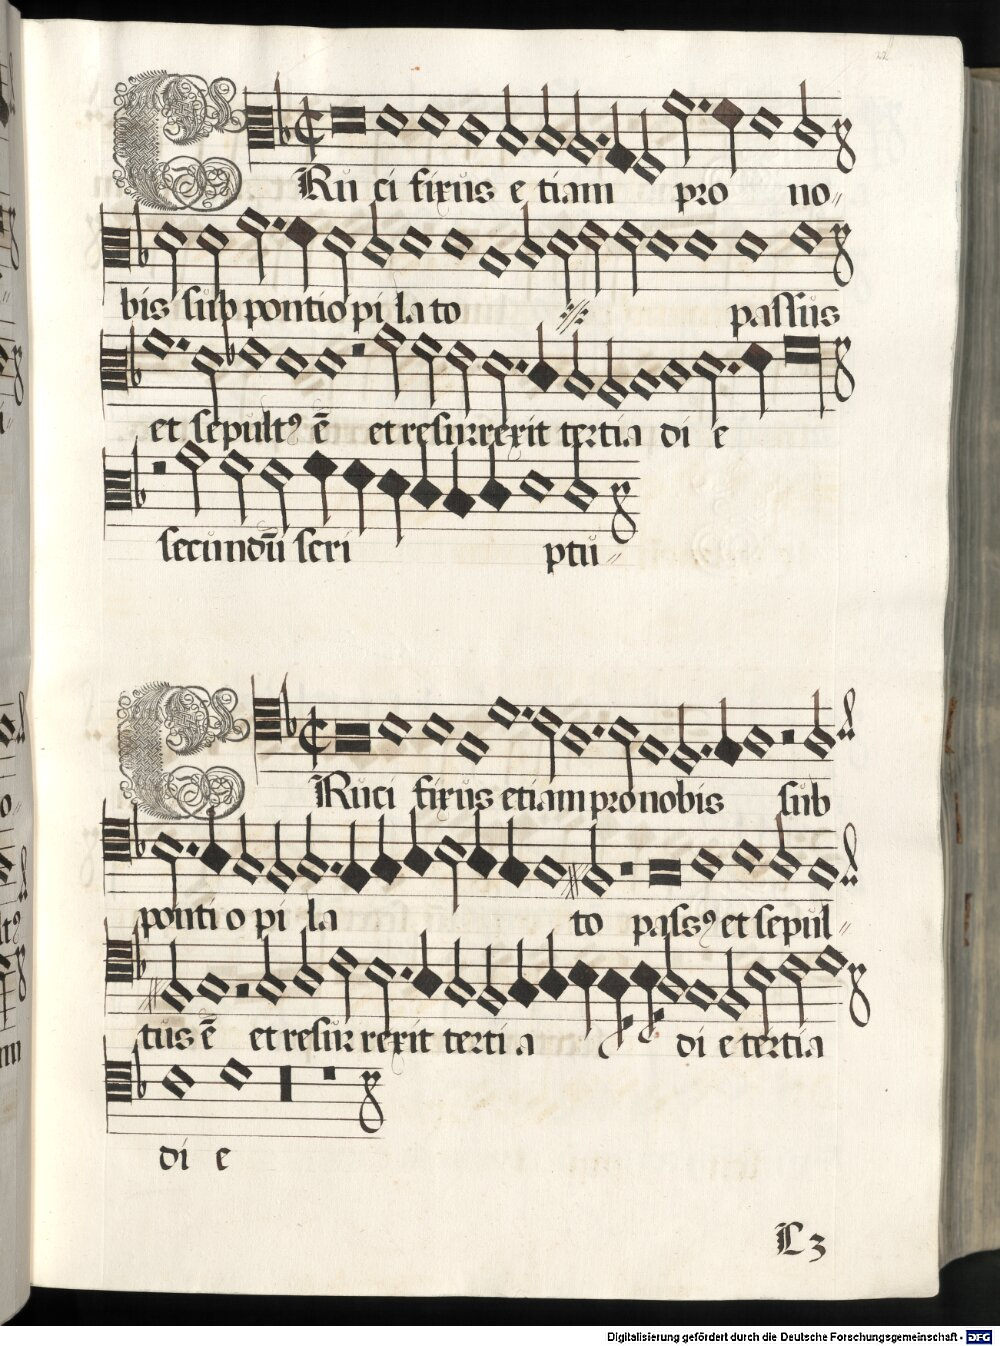 22
CRuci fixus etiam pro no〃
bis sub pontio pi lato passus
et sepult⁹ ē et resurrexit tertia di e
secundū scri ptu〃
CRuci fixus etiam pro nobis sub
ponti o pi la to pass⁹ et sepul〃
tus ē et resurrexit terti a di e tertia
di e
L 3
Digitalisierung gefördert durch die Deutsche Forschungsgemeinschaft - DFG